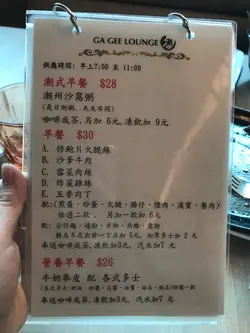 GA GEE LOUNGE
供應時間: 早上7:00 至 11:00
潮式早餐 $28
潮州沙窩粥
(是日例粥. 天天不同)
咖啡或茶. 另加 6元.凍飲加 9元
早餐 $30
A. 仿鮑片火腿絲
B. 沙爹牛肉
C. 雪菜肉絲
D. 炸菜雞絲
E. 五香肉丁
配:(煎蛋/炒蛋/火腿/腸仔/墩肉/漢寶/薯肉)
任選二款. 另加一款加 6元
配: 公仔麵/通粉/意粉/米粉
奉送咖啡或茶,凍飲加3元. 汽水加7 元
營養早餐 $26
牛奶麥皮 配 各式多士
奉送咖啡或茶,凍飲加3元/汽水加7 元